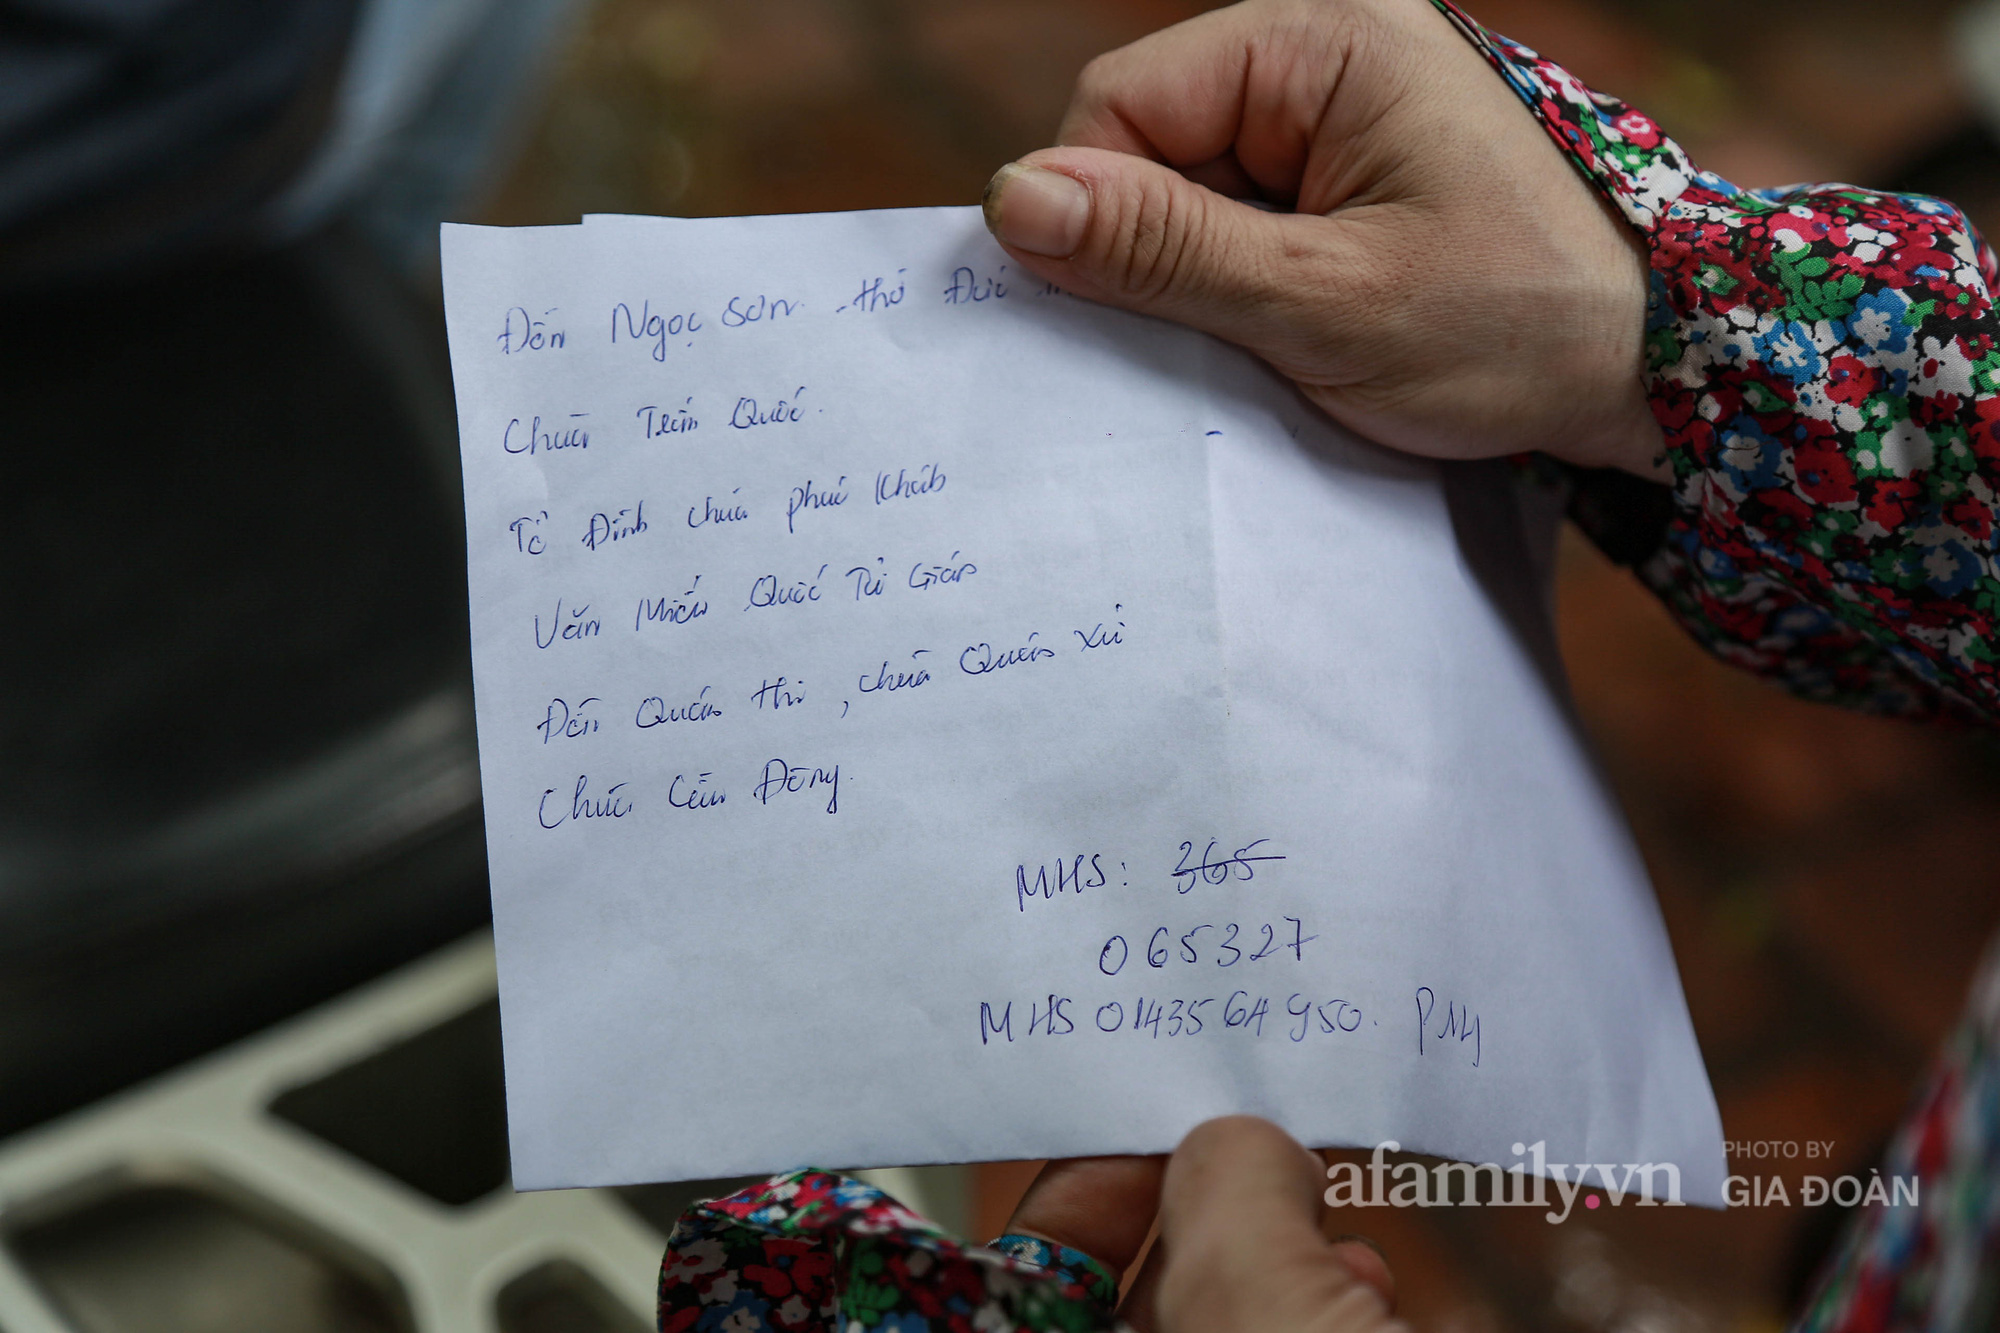 Đền Ngọc Sơn. thờ Đức
Chùa Trấn Quốc.
Tổ Đình chùa phúc Khánh
Văn Miếu Quốc Tử Giám
Đền Quán thi, chùa Quán Xứ
Chùa Cầu Đông.
MHS: 365
065327
MHS 0143564950. P14
afamily.vn
PHOTO BY
GIA ĐOÀN